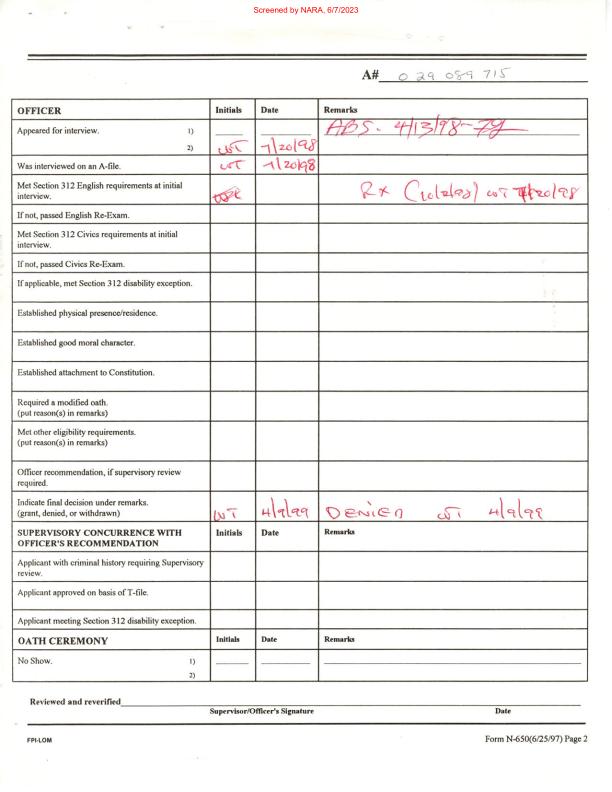 Screened by NARA, 6/7/2023
A# 029 089 715
OFFICER Initials Date Remarks
Appeared for interview. 1) ABS. 4/13/98-
2) WT 7/20/98
Was interviewed on an A-file. WT 7/20/98
Met Section 312 English requirements at initial
interview. Rx (10/2/98) WT 7/20/98
If not, passed English Re-Exam.
Met Section 312 Civics requirements at initial
interview.
If not, passed Civics Re-Exam.
If applicable, met Section 312 disability exception.
Established physical presence/residence.
Established good moral character.
Established attachment to Constitution.
Required a modified oath.
(put reason(s) in remarks)
Met other eligibility requirements.
(put reason(s) in remarks)
Officer recommendation, if supervisory review
required.
Indicate final decision under remarks.
(grant, denied, or withdrawn) WT 4/9/99 DENIED WT 4/9/99
SUPERVISORY CONCURRENCE WITH Initials Date Remarks
OFFICER'S RECOMMENDATION
Applicant with criminal history requiring Supervisory
review.
Applicant approved on basis of T-file.
Applicant meeting Section 312 disability exception.
OATH CEREMONY Initials Date Remarks
No Show. 1)
2)
Reviewed and reverified
Supervisor/Officer's Signature Date
FPI-LOM Form N-650(6/25/97) Page 2